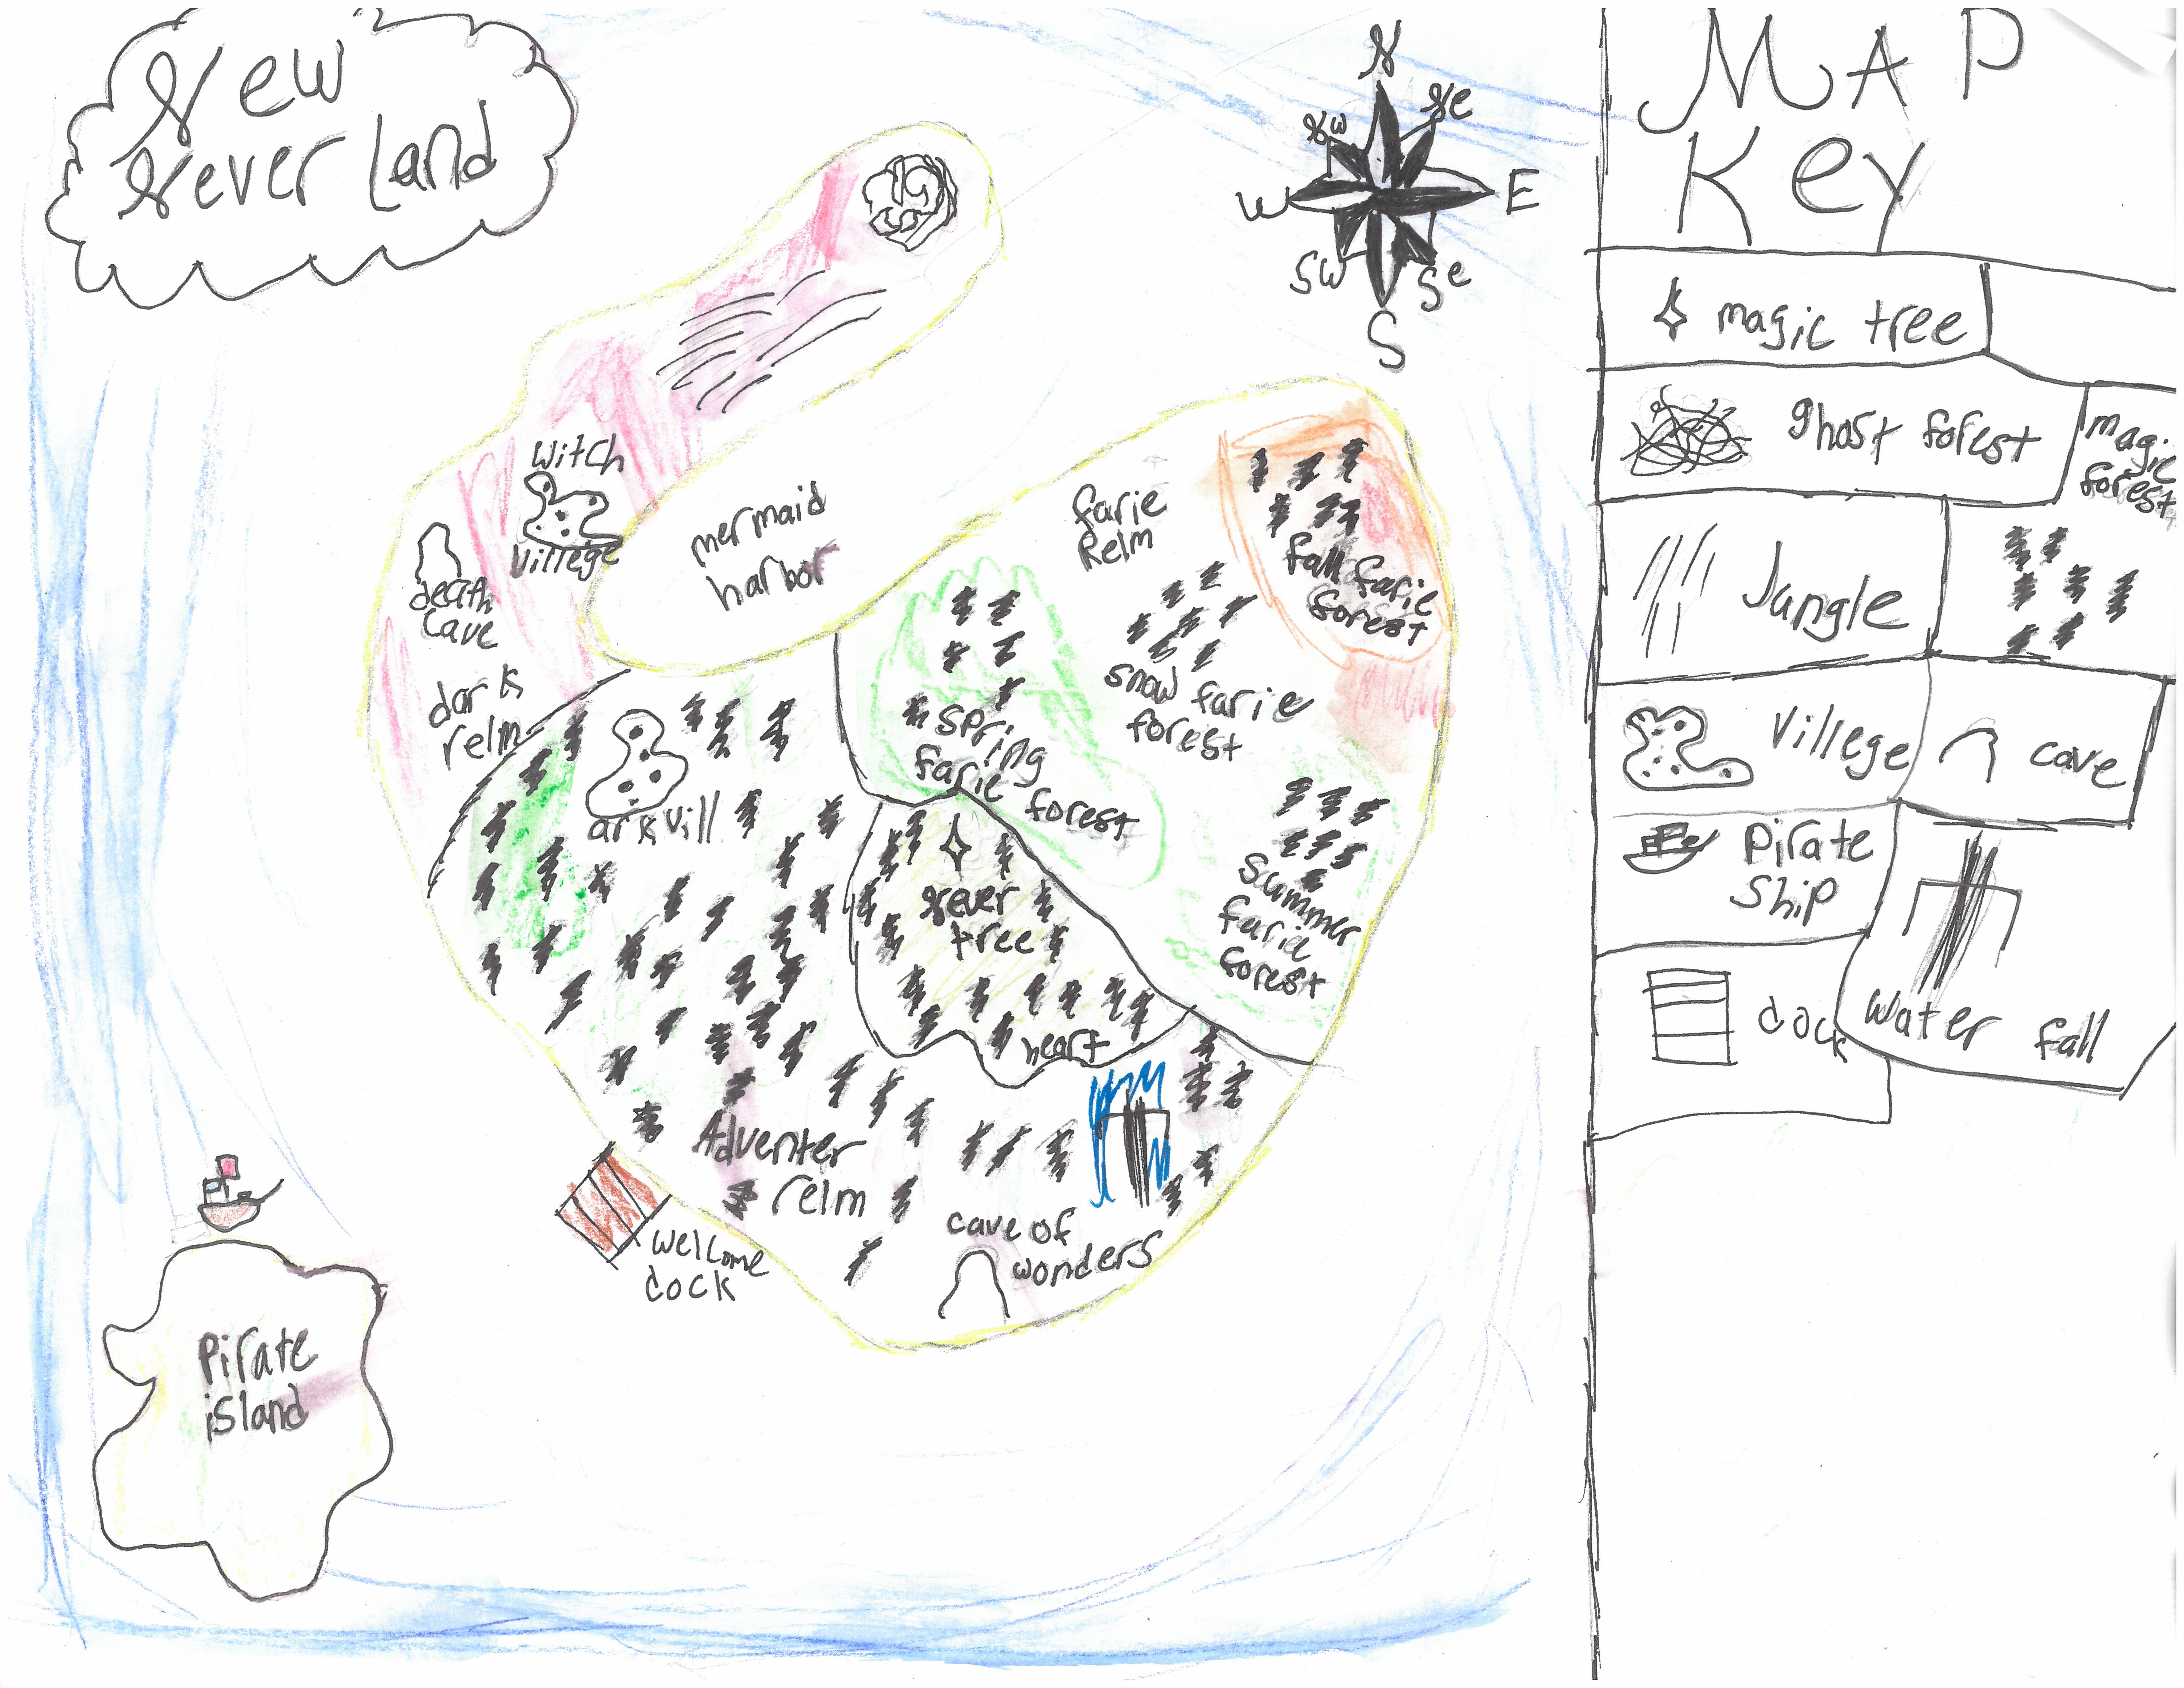 New
Never Land
N
Nw
Ne
W
E
Sw
Se
S
witch
villege
death
cave
dark
relm
mermaid
harbor
farie
Relm
fall farie
forest
snow farie
forest
spring
farie
forest
summer
farie
forest
ark vill
Never
tree
heart
Adventer
relm
cave of
wonders
welcome
dock
Pirate
island
MAP
Key
magic tree
ghost forest
magic
forest
Jungle
Villege
cave
Pirate
Ship
dock
Water fall